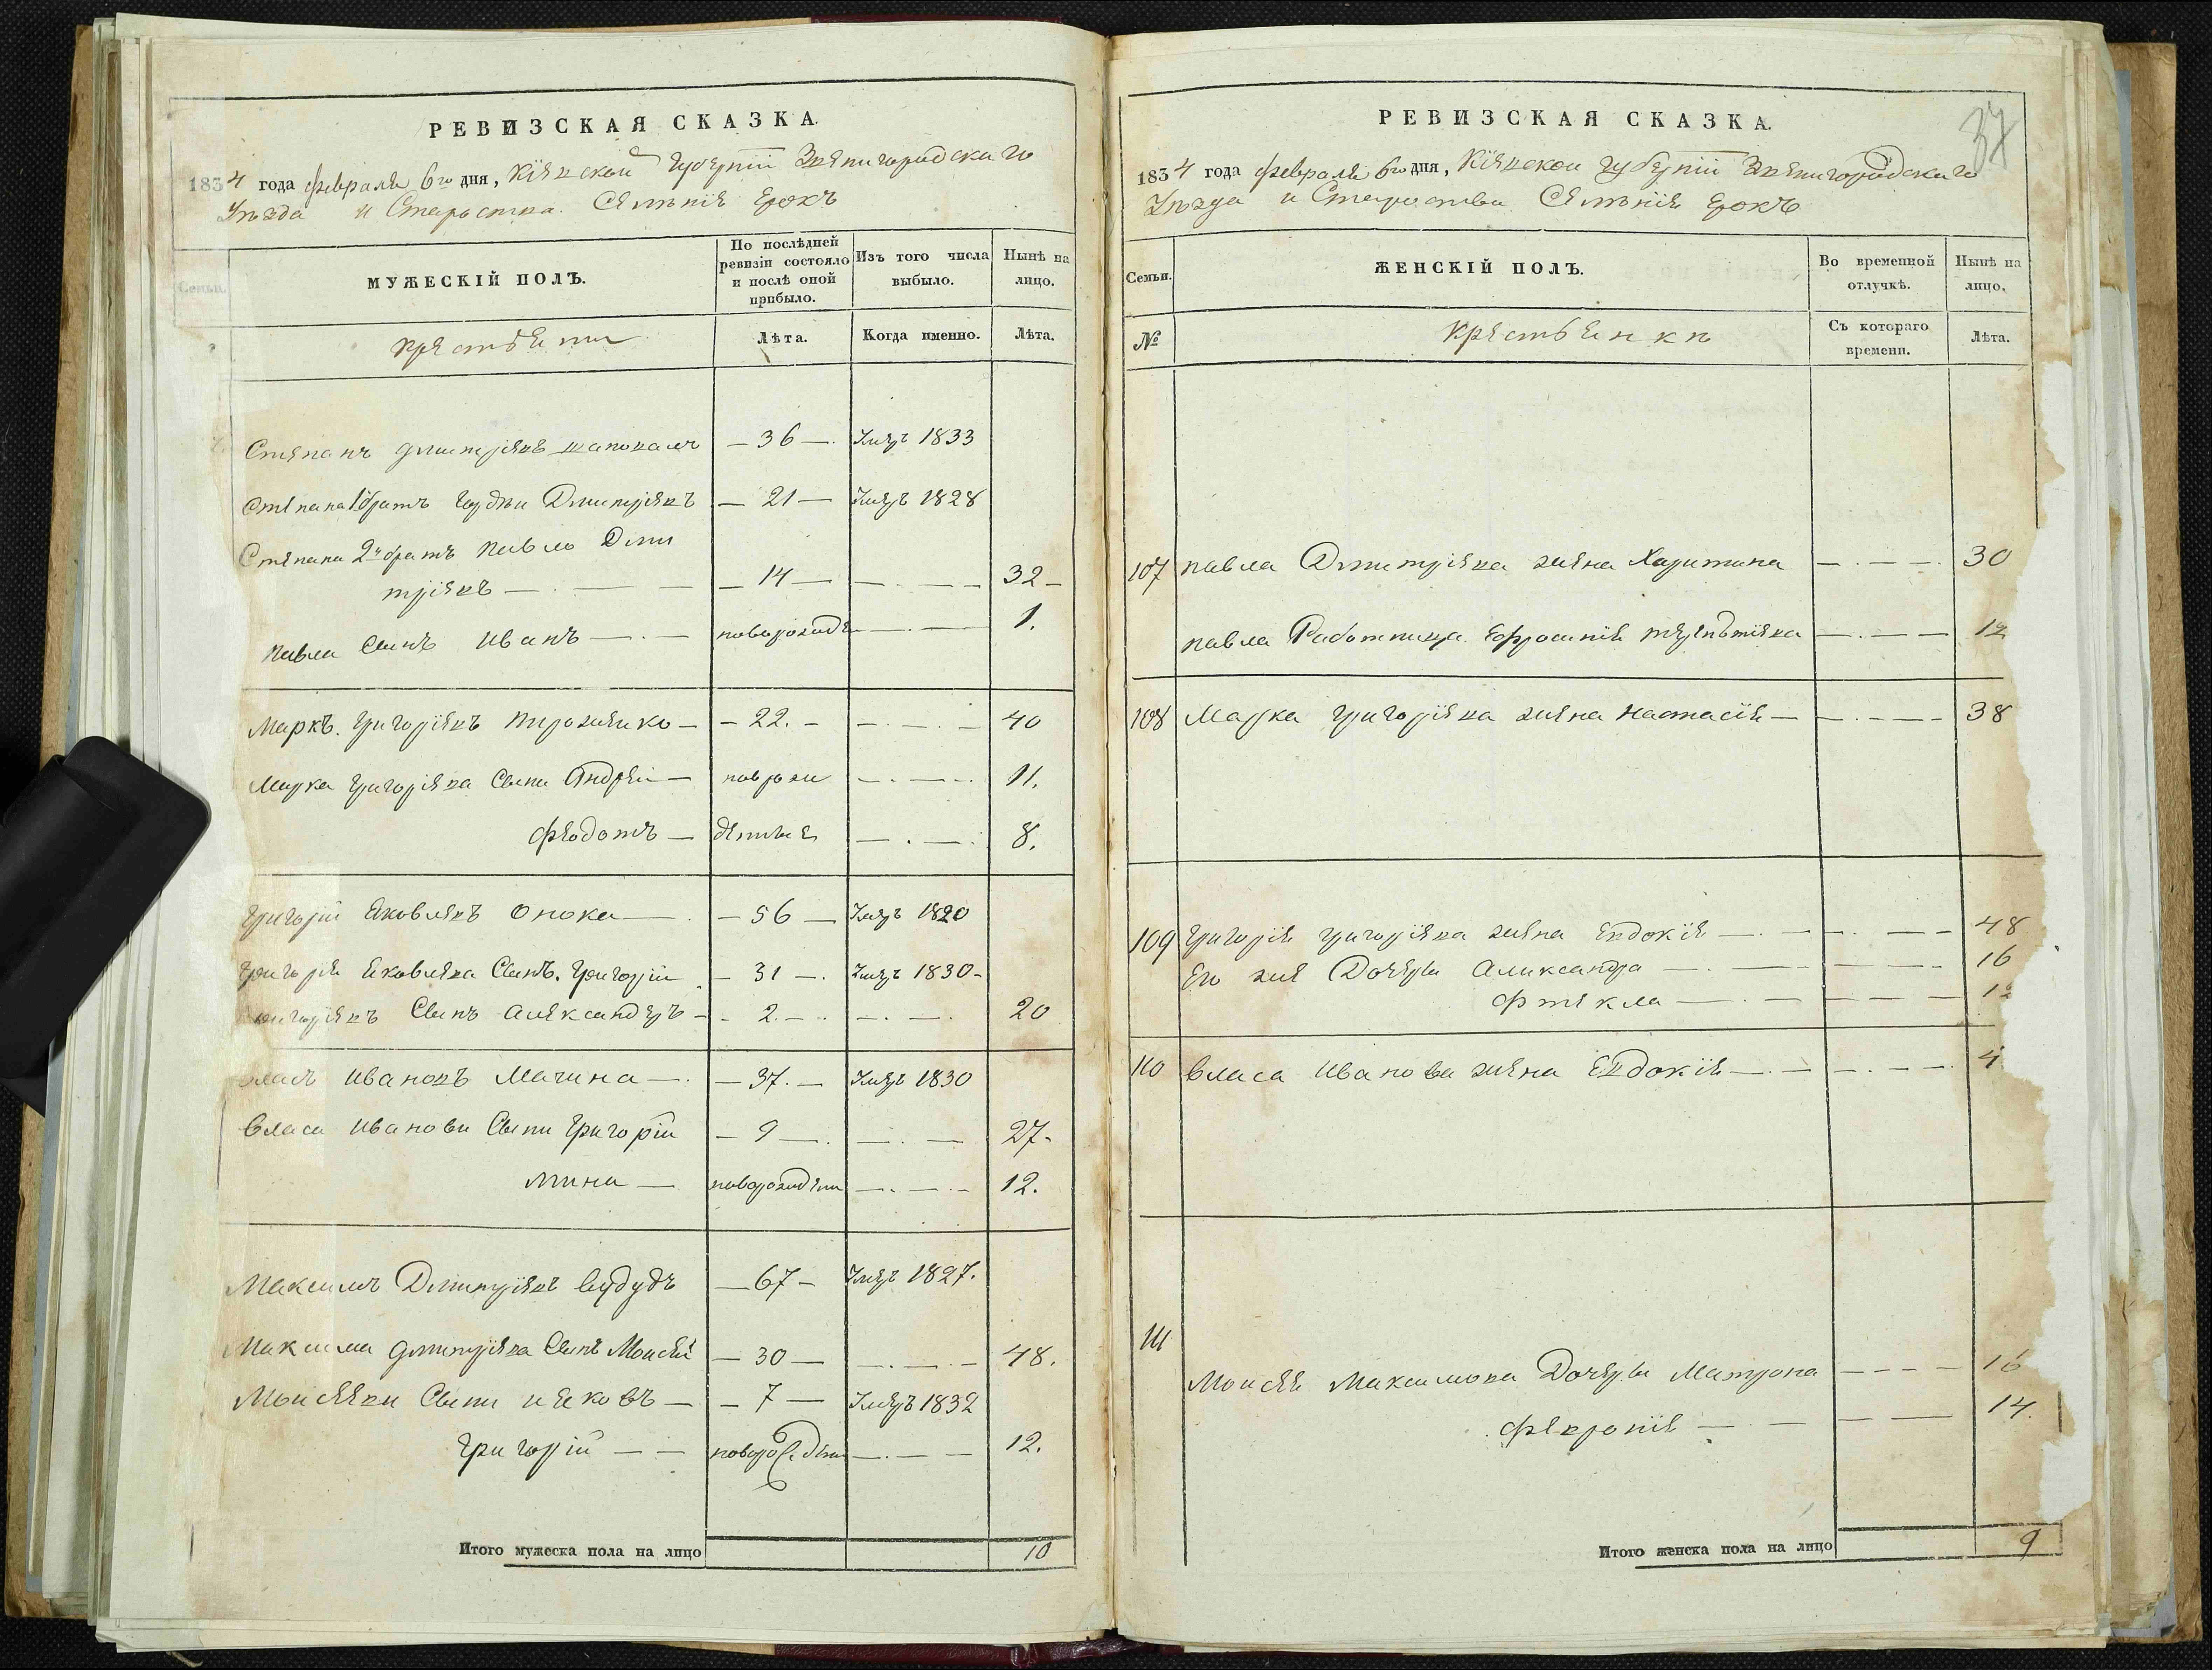 РЕВИЗСКАЯ СКАЗКА.
1834 года февраля 6го дня, Кіевской губерніи Звенигородскаго
Уѣзда и Староства. Селѣнія Ерокъ
Семьи.
МУЖЕСКІЙ ПОЛЪ.
По послѣдней ревизіи состояло и послѣ оной прибыло.
Изъ того числа выбыло.
Нынѣ на лицо.
крестьѣни
Лѣта.
Когда именно.
Лѣта.
Степанъ Дмитріевъ — 36 — Умеръ 1833
Степана 1 братъ Дмитріевъ — 21 — Умеръ 1828
Степана 2й братъ Павло Дми
тріевъ — 14 — — 32 —
Павла Сынъ Иванъ — новорожде — 1.
Маркъ. Григоріевъ — 22. — — 40
Марка Григоріева Сыни Андрей — новрож — 11.
Феодотъ — деные — 8.
Григорій Яковлевъ Опока — 56 — Умеръ 1820
Григорія Яковлева Сынъ. Григорій — 31 — Умеръ 1830 —
Григоріевъ Сынъ Александеръ — 2. — — 20
Власъ Ивановъ Мачина — 37. — Умеръ 1830
Власа Иванови Сыни Григорій — 9 — — 27 —
Мина — новорожден — 12.
Максимъ Дмитріевъ — 67 — Умеръ 1827.
Максима Дмитріева Сынъ Моисей — 30 — — 48.
Моисѣеви Сыни Яковъ — 7 — Умеръ 1832
Григорій — новорожден — 12.
Итого мужеска пола на лицо 10
37
РЕВИЗСКАЯ СКАЗКА.
1834 года февраля 6го дня, Кіевской губерніи Звенигородскаго
Уѣзда и Староства Селѣнія Ерокъ
Семьи.
ЖЕНСКІЙ ПОЛЪ.
Во временной отлучкѣ.
Нынѣ на лицо.
№
крестьѣнки
Съ котораго времени.
Лѣта.
107 Павла Дмитріева жена Харитина — 30
Павла Работница Ефросинія — 12
108 Марка Григоріева жена Настасія — 38
109 Григорія Григоріева жена Евдокія — 48
Его же Дочери Александра — 16
Фтекла — 12
110 Власа Иванова жена Евдокія — 4
111
Моисея Максимова Дочери Матрона — 16
Февронія — 14.
Итого женска пола на лицо 9